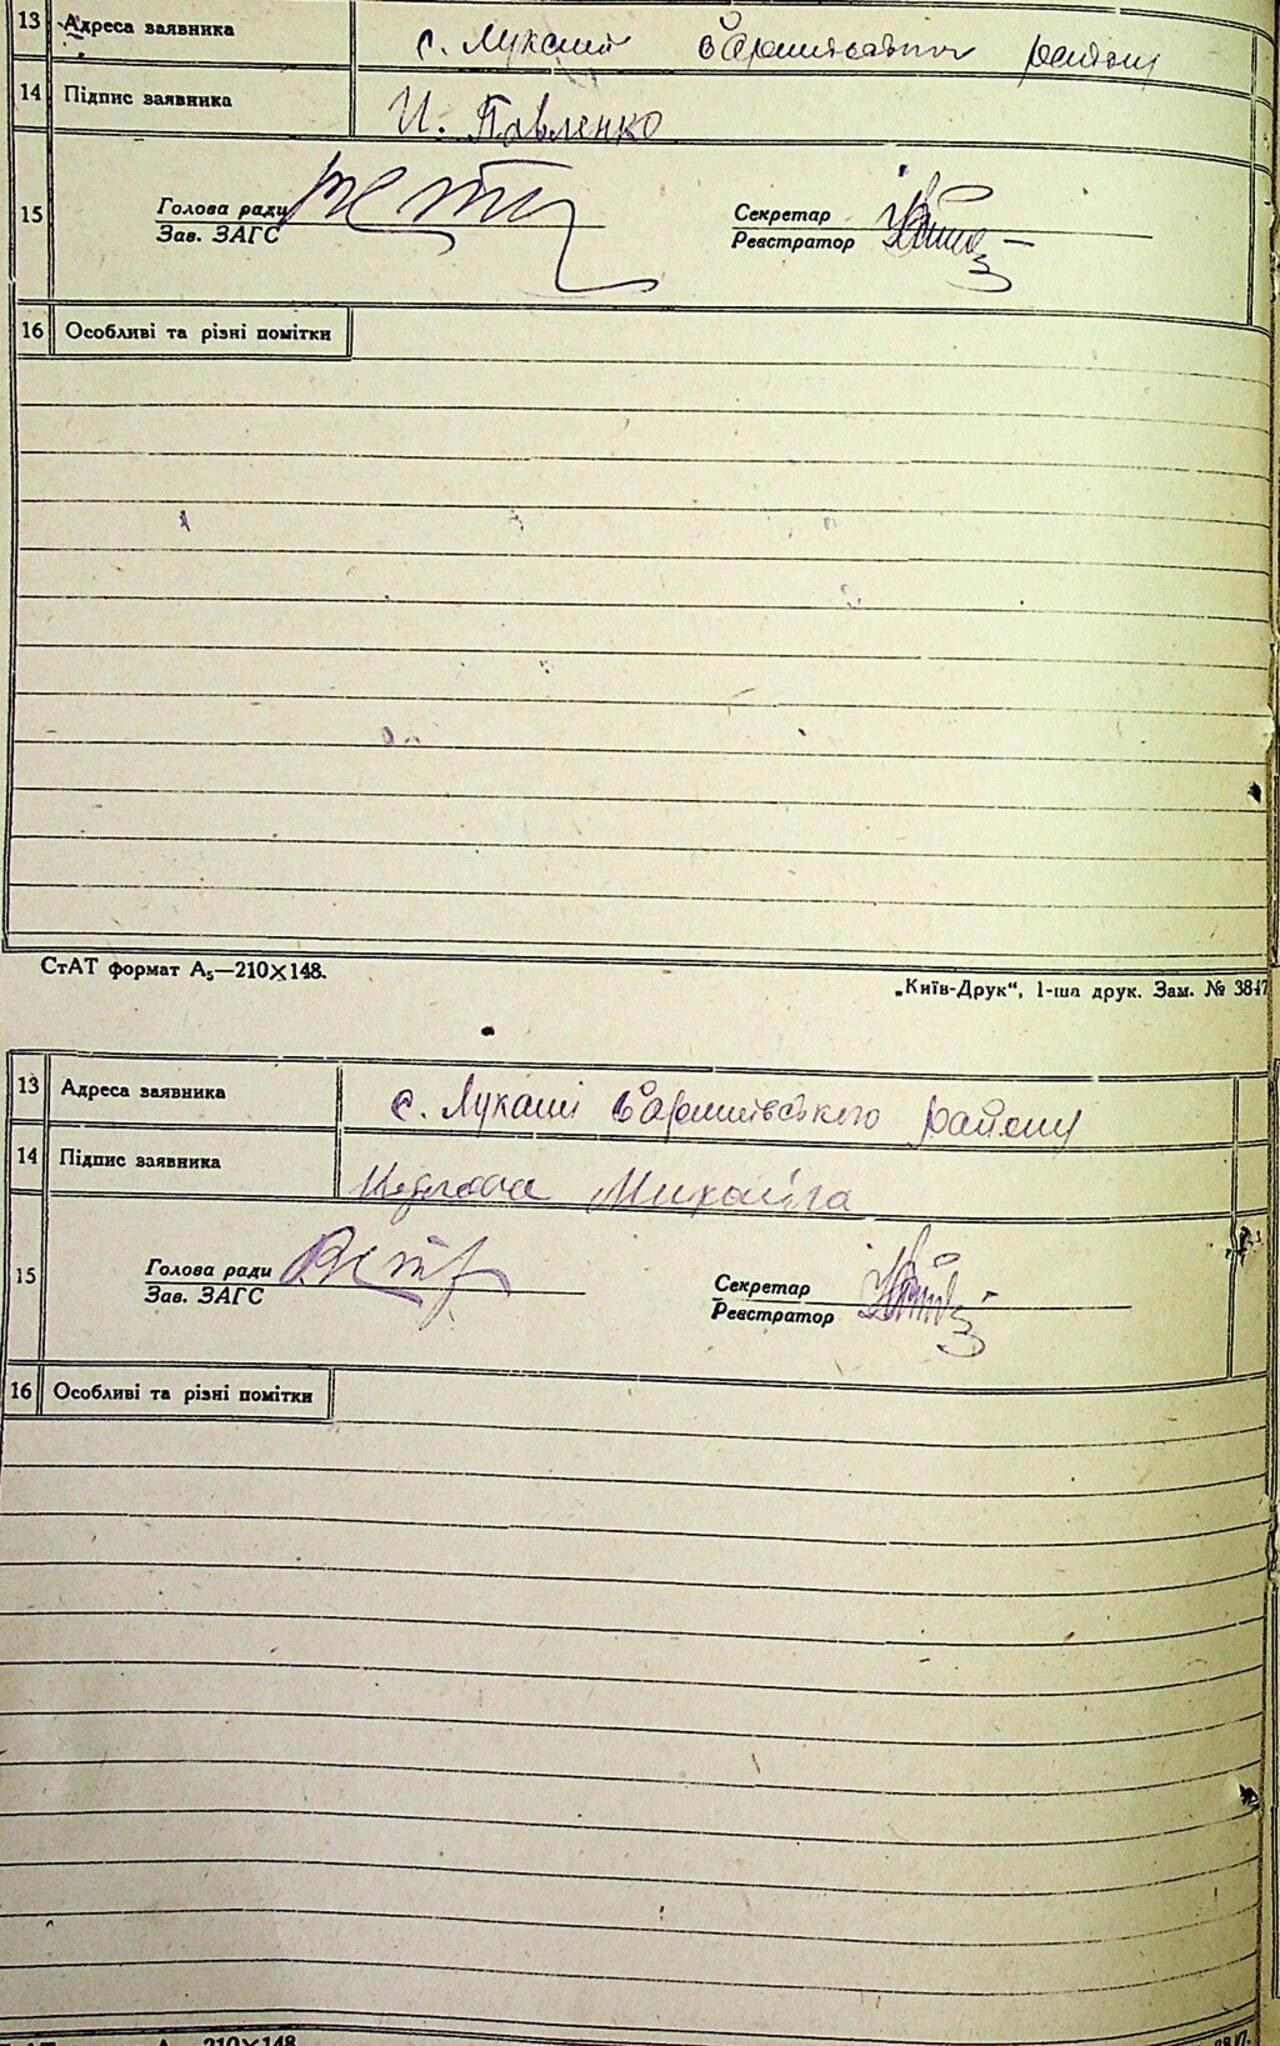 13 Адреса заявника с. Лукаші Баришівського району
14 Підпис заявника И. Павленко
15 Голова ради Секретар
Зав. ЗАГС Реєстратор
16 Особливі та різні помітки
СтАТ формат А₅—210×148.
„Київ-Друк“, 1-ша друк. Зам. № 3847
13 Адреса заявника с. Лукаші Баришівського району
14 Підпис заявника Михайла
15 Голова ради Секретар
Зав. ЗАГС Реєстратор
16 Особливі та різні помітки
210×148